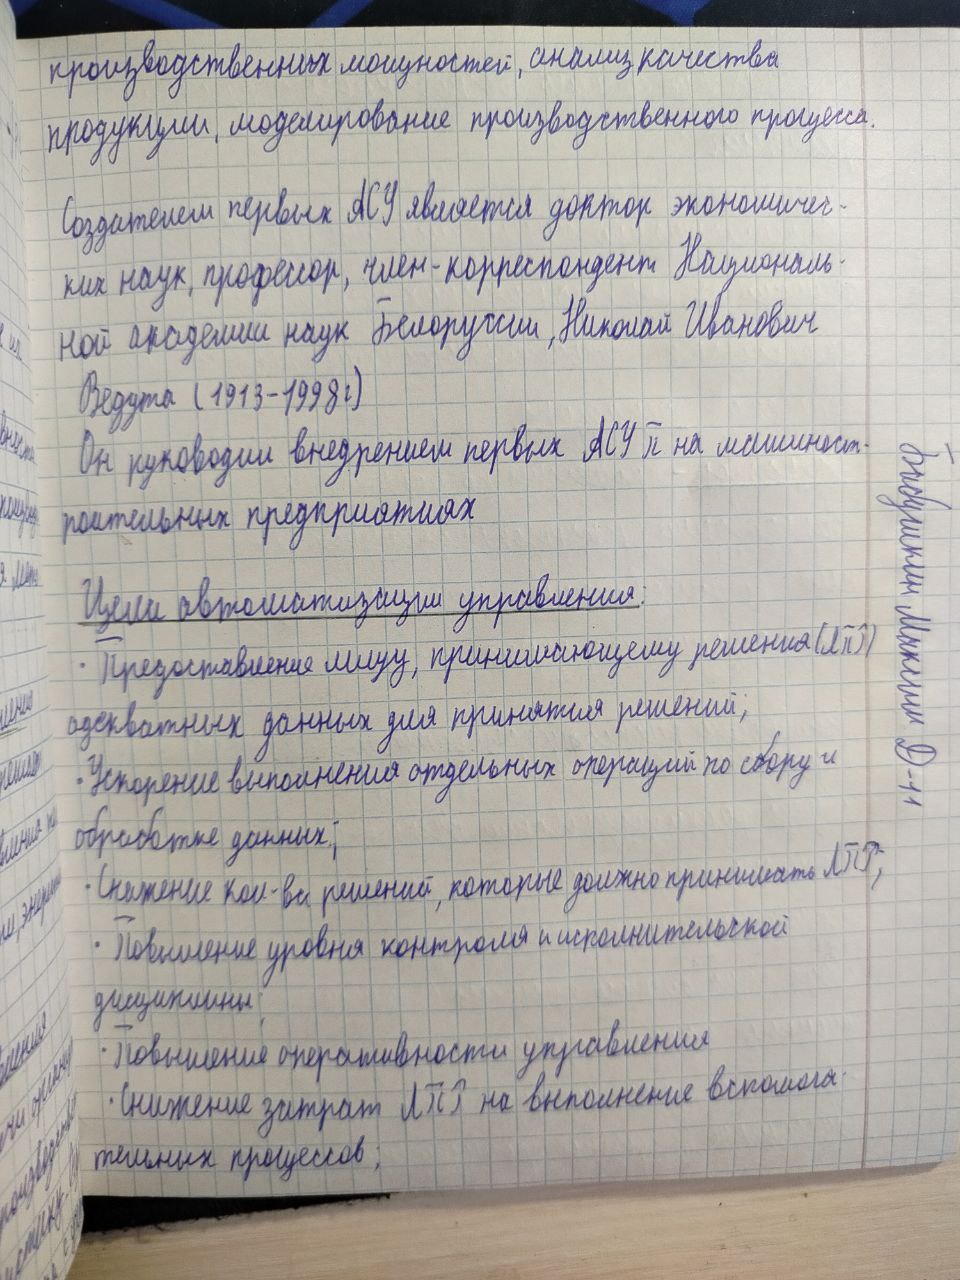 производственных мощностей, анализ качества
продукции, моделирование производственного процесса.
Создателем первых АСУ является доктор экономичес-
ких наук, профессор, член-корреспондент Националь-
ной академии наук Белоруссии, Николай Иванович
Ведута (1913-1998г)
Он руководил внедрением первых АСУ П на машиност-
роительных предприятиях
Цели автоматизации управления:
· Предоставление лицу, принимающему решения (ЛПР)
адекватных данных для принятия решений;
· Ускорение выполнения отдельных операций по сбору и
обработке данных;
· Снижение кол-ва решений, которые должно принимать ЛПР;
· Повышение уровня контроля и исполнительской
дисциплины;
· Повышение оперативности управления
· Снижение затрат ЛПР на выполнение вспомога-
тельных процессов;